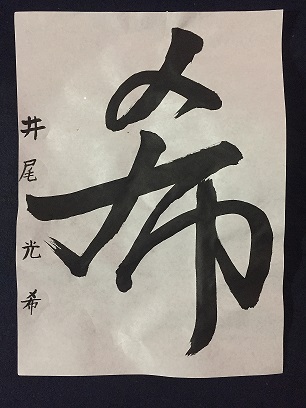 希
井尾光希